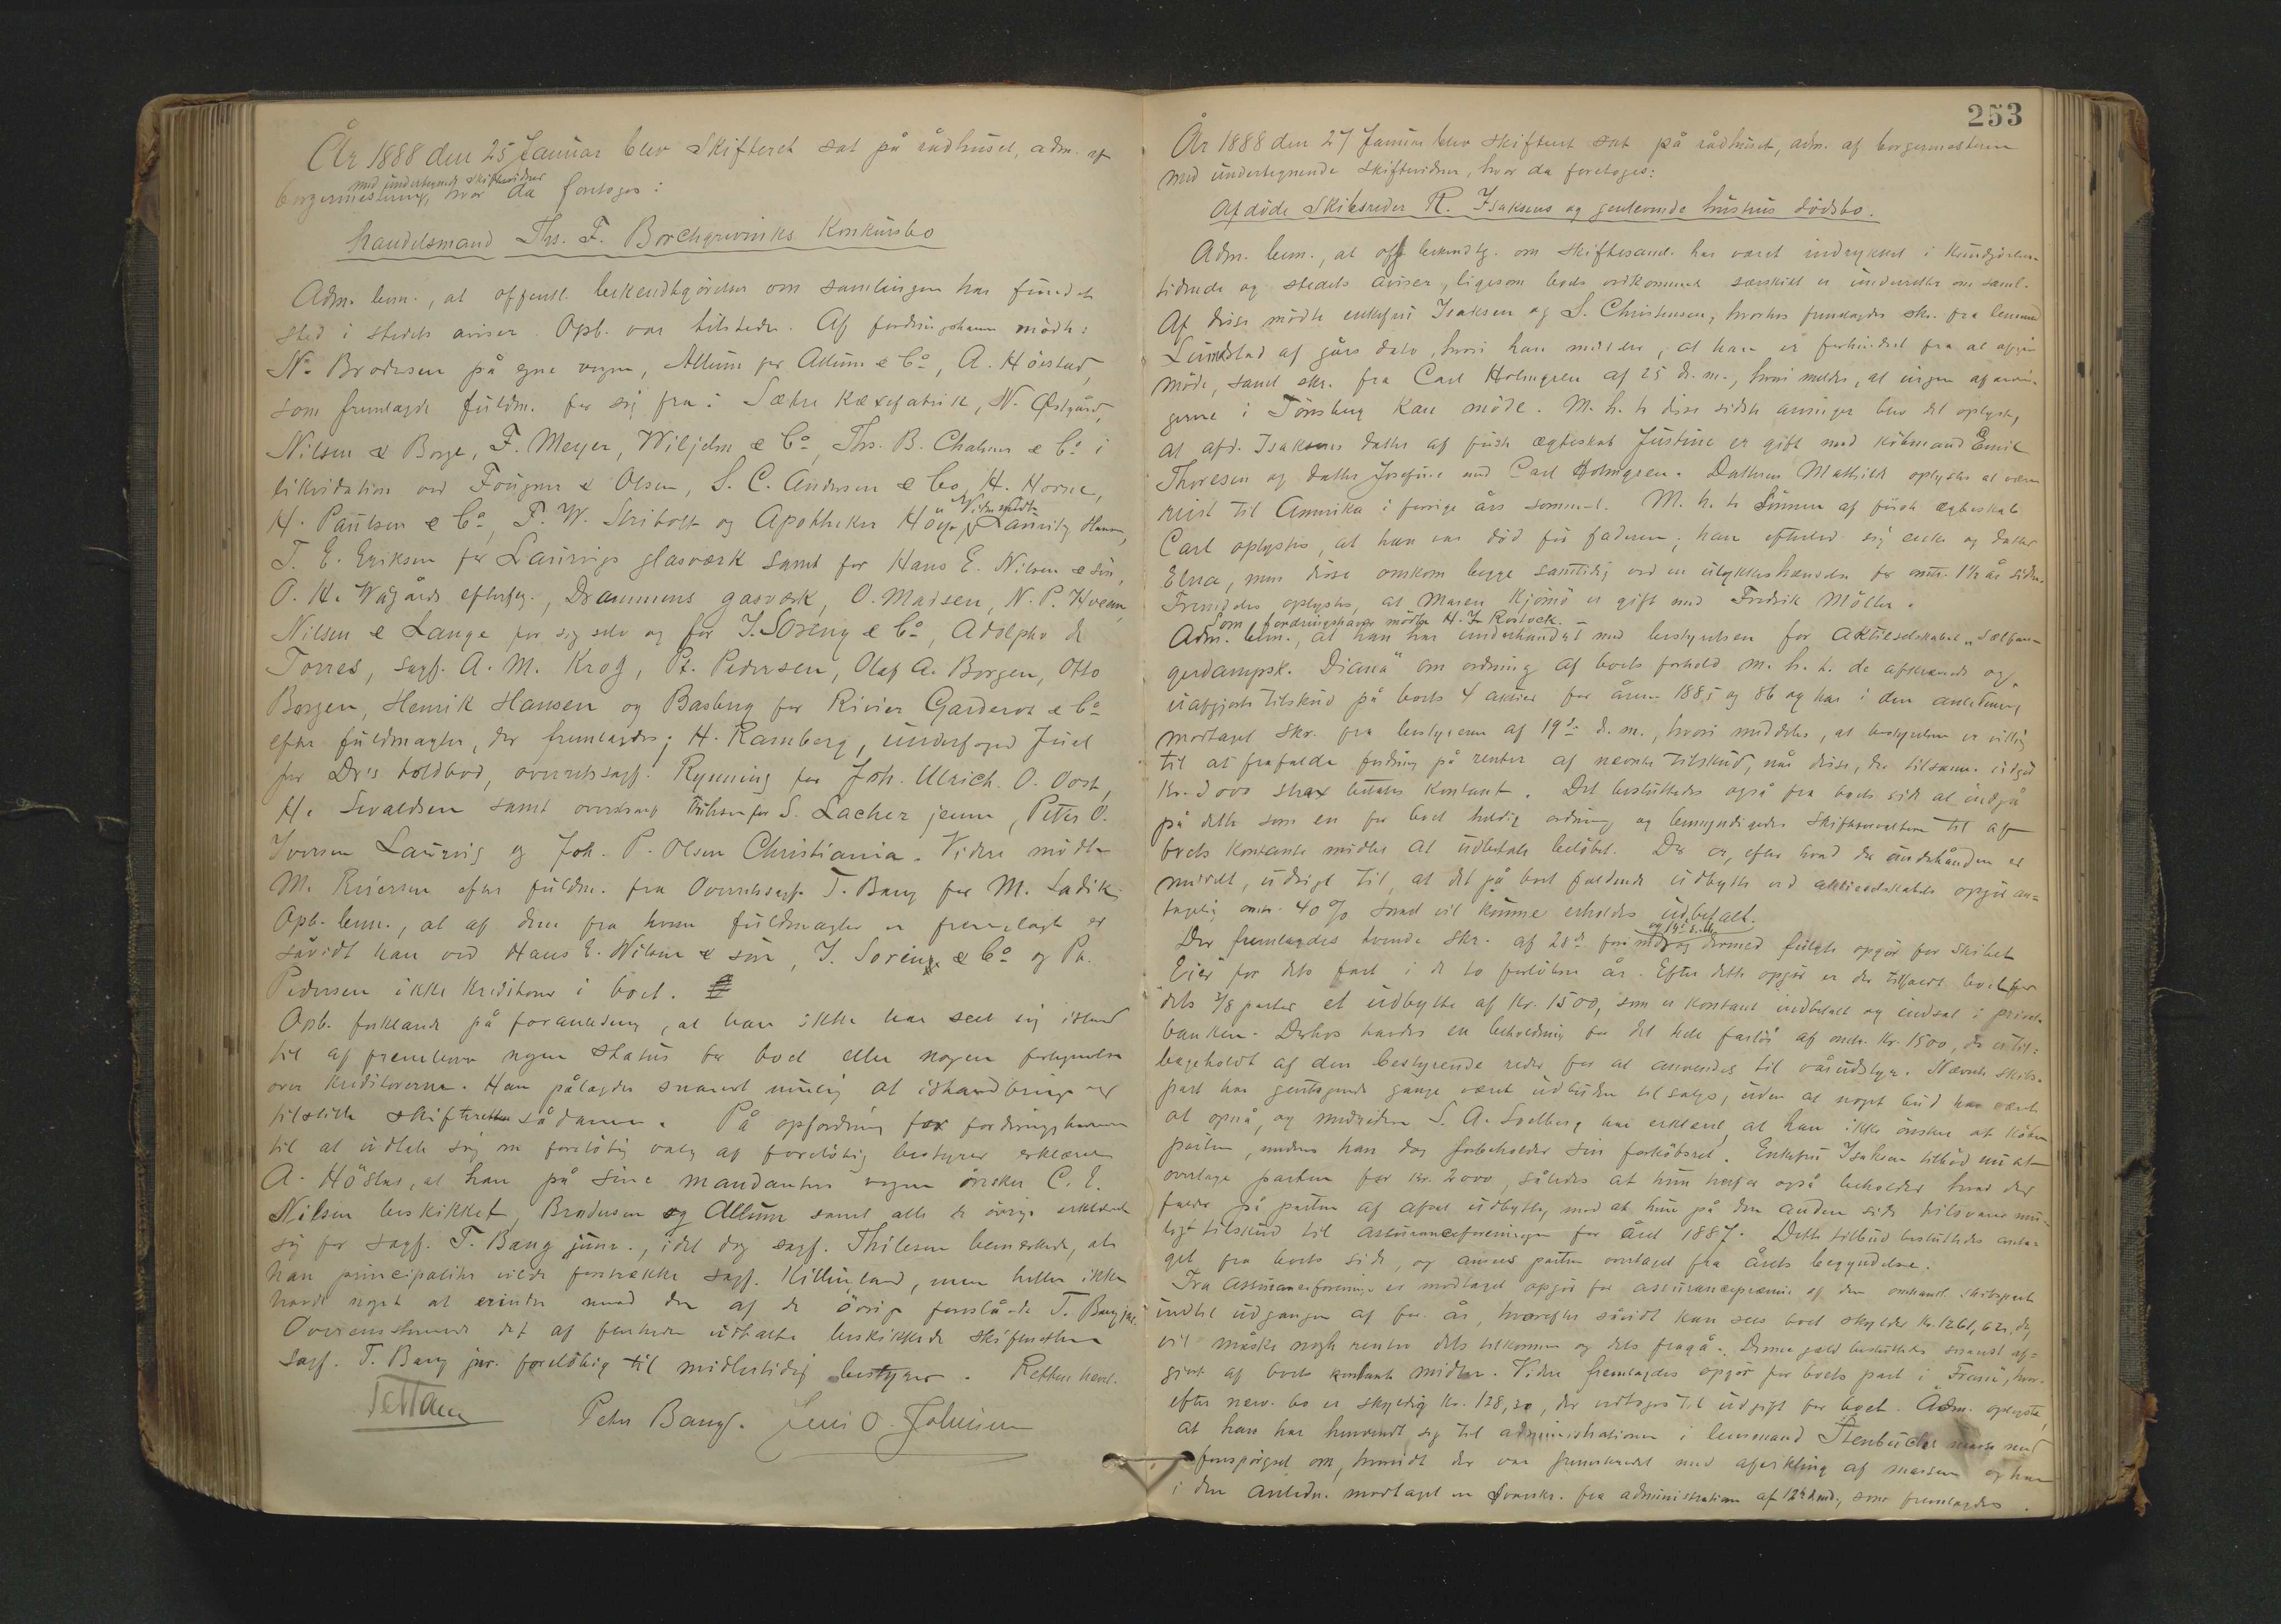 År 1888 den 25 Januar blev Skifteret sat på rådhuset, adm. af
med undertegnede skiftevidner
borgermesteren, hvor da foretoges:
handelsmand Ths. F. Borchgrevinks Konkursbo
Adm. bem., at offentl. bekendtgörelse om samlingen har fundet
sted i stedets aviser. Opb. var tilstede. Af fordringshavere mödte:
N. Brodersen på egne vegne, Allum for Allum & Co, A. Höistad,
som fremlagde fuldm. for sig fra: Sætre Kæxfabrik, N. Østgård,
Nilsen & Borge, F. Meyer, Wiljelm & Co, Ths. B. Chalmer & Co i
likvidation ved Fougner & Olsen, S. C. Andersen & Co, H. Horne,
H. Paulsen & Co, P. W. Stribolt og Apotheker Höyer, Lauritz Hansen,
T. E. Eriksen for Laurvigs glasværk samt for Hans E. Nilsen & sön,
O. H. Wågårds efterfg., Drammens gasværk, O. Madsen, N. P. Hveem,
Nilsen & Lange for sig selv og for J. Soreny & Co, Adolpho de
Torres, sagf. A. M. Krog, Pt. Pedersen, Olaf A. Borgen, Otto
Borgen, Henrik Hansen og Basberg for Rivier Garderot & Co
efter fuldmagter, der fremlagdes; H. Ramberg, underfoged Juel
for Dr's toldbod, overretssagf. Rynning for Joh. Ulrich. O. Oost,
H. Sivaldsen samt overretssagf. Thilesen for S. Lacher jenne, Peter O.
Iversen Laurvig og Joh. P. Olsen Christiania. Videre mödte
M. Riiersen efter fuldm. fra Overretssagf. T. Bang for M. Ladik.
Opb. bem., at af dem fra hvem fuldmagter er fremlagt er
såvidt han ved Hans E. Nilsen & sön, J. Soreny & Co og Pt.
Pedersen ikke kreditorer i boet.
Opb. forklarede på foranledning, at han ikke har seet sig istand
til at fremlevere nogen status for boet eller nogen fortegnelse
over kreditorerne. Han pålagdes snarest mulig at istandbringe og
tilstille skifteretten sådanne. På opfordring for fordringshaverne
til at udtale sig om forelöbig valg af forelöbig bestyrer erklærede
A. Höistad, at han på sine mandanters vegne önsker C. E.
Nilsen beskikket, Brodersen og Allum samt alle de övrige erklærede
sig for sagf. T. Bang junr., idet dog sagf. Thilesen bemærkede, at
han principaliter vilde foretrække sagf. Killingland, men heller ikke
havde noget at erindre mod den af de övrige foreslåede T. Bang jr.
Overensstemmende det af fleerheden udtalte beskikkede skifteretten
sagf. T. Bang jnr. forelöbig til midlertidig bestyrer. Retten hævet.
Peter Bang. Jens O. Johnsen
253
År 1888 den 27 Januar blev skifteret sat på rådhuset, adm. af borgermesteren
med undertegnende skiftevidner, hvor da foretoges:
Afdöde Skibsreder R. Isaksens og gjenlevende hustrus dödsbo.
Adm. bem., at off. bekendtg. om skiftesaml. har været indrykket i Kundgörelses-
tidende og stedets aviser, ligesom boets vedkommende særskilt er underrettet om saml.
Af disse mödte enkefru Isaksen og S. Christensen, hvorhos fremlagdes skr. fra lensmand
Lundstad af gårs dato, hvori han meddeler, at han er forhindret fra at afgive
möde, samt skr. fra Carl Holmgren af 25 d. m., hvori meldes, at ingen af arvin-
gerne i Tönsberg kan möde. M. h. t. disse sidste arvinger blev det oplyst,
at afd. Isaksens datter af förste ægteskab Justine er gift med köbmand Emil
Thoresen og datter Josefine med Carl Holmgren. Datteren Mathilde oplystes at være
reist til Amerika i forrige års sommer. M. h. t. Sönnen af förste ægteskab
Carl oplystes, at han var död för faderen; han efterlod sig enke og datter
Elna, men disse omkom begge samtidig ved en ulykkeshændelse for omtr. 1½ år siden.
Fremdeles oplystes, at Maren Kjömö er gift med Fredrik Möller.
Som fordringshaver mödte H. J. Rostock.
Adm. bem., at han har underhandlet med bestyrelsen for Aktieselskabet „Sælfan-
gerdampsk. Diana" om ordning af boets forhold m. h. t. de afkrævede og
uafgjorte tilskud på boets 4 aktier for årene 1885 og 86 og har i den anledning
modtaget skr. fra bestyrerne af 19de d. m., hvori meddeles, at bestyrelsen er villig
til at frafalde fordring på renter af nævnte tilskud, når disse, der tilsamm. udgör
Kr. 3000 strax betales kontant. Det besluttedes også fra boets side at indgå
på dette som en for boet heldig ordning og bemyndigedes skifteforvalteren til af
boets kontante midler at udbetale belöbet. Der er, efter hvad der underhånden er
udsigt til, at det på boet faldende udbytte ved aktieselskabets opgjör an-
tagelig omtr. 40% snart vil kunne erholdes udbetalt.
og 19de d. m.
Der fremlagdes tvende skr. af 28de for. md. og dermed fulgte opgör for skibet
Eiers for dets fart i de to forlöbne år. Efter dette opgör er der tilfaldt boet for
dets 3/8 parter et udbytte af Kr. 1500, som er kontant indbetalt og indsat i privat-
banken. Derhos havdes en beholdning for det hele fartöi af omtr. Kr. 1500, der er til-
bageholdt af den bestyrende reder for at anvendes til vårudstyr. Nævnte skibs-
part har gentagende gange været udbuden tilsalgs, uden at noget bud har været
at opnå, og medrederen S. A. Soelberg har erklæret at han ikke önsker at köbe
parten, medens han dog forbeholder sin forköbsret. Enkefru Isaksen tilböd nu at
overtage parten for Kr. 2000, således at hun herfor også beholder hvad der
falder på parten af afsat udbytte, mod at hun på den anden side tilsvarer mu-
ligt tilskud til assuranceforeningen for året 1887. Dette tilbud besluttedes anta-
get fra boets side, og ansees parten overtaget fra årets begyndelse.
Fra assuranceforeningen er modtaget opgör for assurancepræmie af den omhandl. skibspart
indtil udgangen af for. år, hvorefter såvidt kan sees boet skylder Kr. 1261,62, der
vil måske nogle renter dels tilkomme og dels fragå. Denne gæld besluttedes snarest af-
gjort af boets kontante midler. Videre fremlagdes opgör for boets part i „Frami", hvor-
efter nærv. bo er skyldig Kr. 128,20, der vedtoges til udgift for boet. Adm. oplyste,
at han har henvendt sig til administrationen i lensmand Stenbuchs masse med
forespörgsel om, hvorvidt der var fremskredet med afvikling af massen og har
i den anledn. modtaget en Svarskr. fra administration af 12te d. md., som fremlagdes.